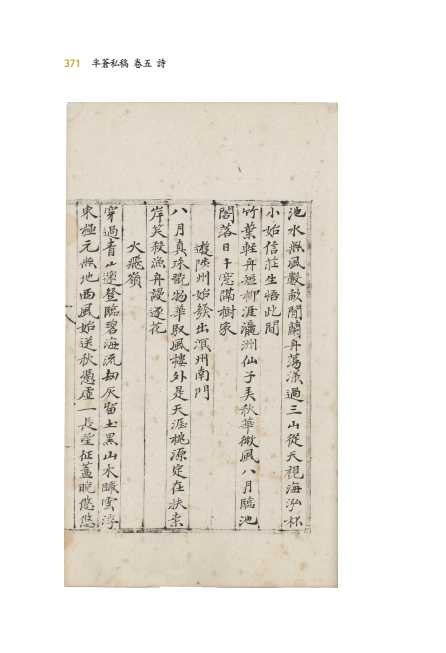 371 半蒼私稿 卷五 詩
池水無風數畝開蘭舟蕩漾過三山從天視海泓杯
小始信莊生悟此間
竹葉輕舟遊柳涯瀛洲仙子美秋華微風八月臨池
閣落日千窓隔樹家
遊陟州始發出溟州南門
八月真珠翫物華馭風樓外是天涯桃源定在扶桑
岸笑殺漁舟謾逐花
火飛嶺
穿過青山遠登臨碧海流劫灰留土黑山木曠雲浮
東極元無地西風始送秋憑虛一長望征蓋晚悠悠